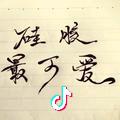 硅胶
最可爱